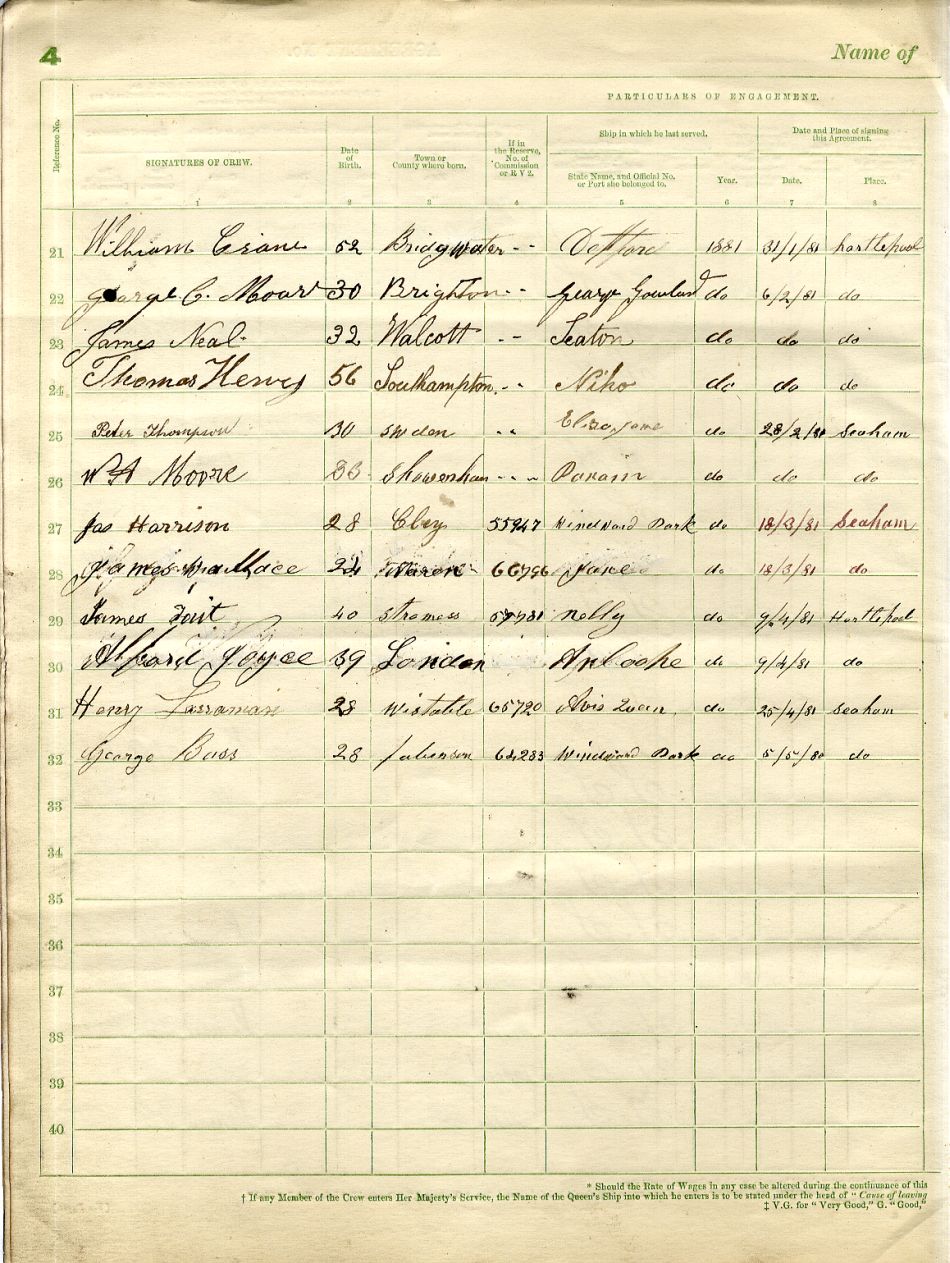 4 Name of
PARTICULARS OF ENGAGEMENT.
Reference No.
SIGNATURES OF CREW.
Date of Birth.
Town or County where born.
If in the Reserve, No. of Commission or R V 2.
Ship in which he last served.
State Name, and Official No. or Port she belonged to.
Year.
Date and Place of signing this Agreement.
Date.
Place.
1 2 3 4 5 6 7 8
21 William Crane 52 Bridgwater - - Deptford 1881 31/1/81 hartlepool
22 George C. Moore 30 Brighton - - George Gowland do 6/2/81 do
23 James Neal 32 Walcott - - Seaton do do do
24 Thomas Henry 56 Southampton - - Niko do do do
25 Peter Thompson 30 Sweden - - Eliza Jane do 28/2/81 Seaham
26 W A Moore 33 - - - do do do
27 Jas Harrison 28 Cley 55947 Windward Park do 18/3/81 Seaham
28 James Wallace 24 66796 Jane do 18/3/81 do
29 James Tait 40 Stromess Nelly do 9/4/81 Hartlepool
30 Joyce 39 London do 9/4/81 do
31 Henry 28 Wistable 65720 do 25/4/81 Seaham
32 George Bass 28 64283 Windward Park do 5/5/80 do
33
34
35
36
37
38
39
40
* Should the Rate of Wages in any case be altered during the continuance of this
† If any Member of the Crew enters Her Majesty's Service, the Name of the Queen's Ship into which he enters is to be stated under the head of "Cause of leaving
‡ V.G. for "Very Good," G. "Good,"